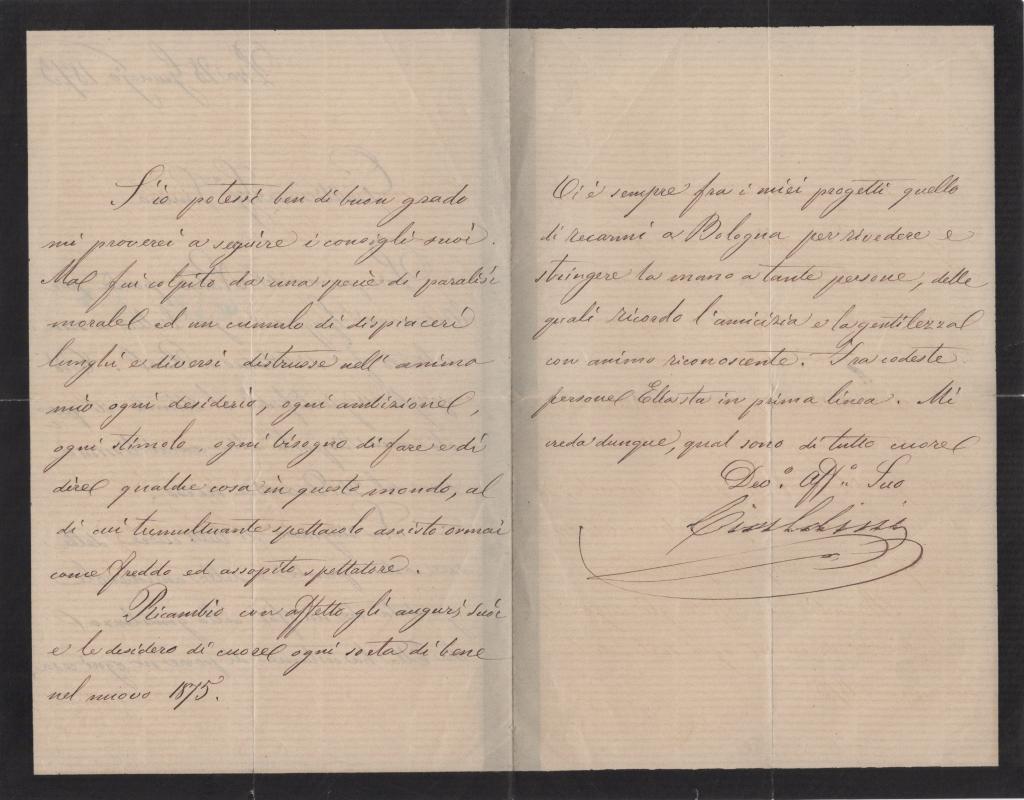 S'io potessi ben di buon grado
mi proverei a seguire i consigli suoi.
Ma fui colpito da una specie di paralisi
morale ed un cumulo di dispiaceri
lunghi e diversi distrusse nell'animo
mio ogni desiderio, ogni ambizione,
ogni stimolo, ogni bisogno di fare e di
dire qualche cosa in questo mondo, al
di cui tumultuante spettacolo assisto ormai
come freddo ed assopito spettatore.
Ricambio con affetto gli augurj suoi
e le desidero di cuore ogni sorta di bene
nel nuovo 1875.
Vi è sempre fra i miei progetti quello
di recarmi a Bologna per rivedere e
stringere la mano a tante persone, delle
quali ricordo l'amicizia e la gentilezza
con animo riconoscente. Fra codeste
persone Ella sta in prima linea. Mi
creda dunque, qual sono di tutto cuore
Devo. Affo. Suo
Cialdini